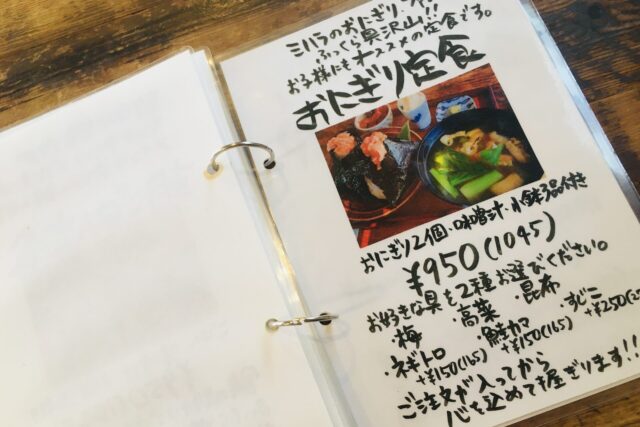 ミハラのおにぎり
ふっくら具沢山!!
お子様にもオススメの定食です。
おにぎり定食
おにぎり2個・味噌汁・小鉢3品付き
¥950(1045)
お好きな具を2種お選びください。
・梅 ・高菜 ・昆布
・ネギトロ +¥150(165) ・鮭カマ +¥150(165) すじこ +¥250
ご注文が入ってから
心を込めて握ぎります!!